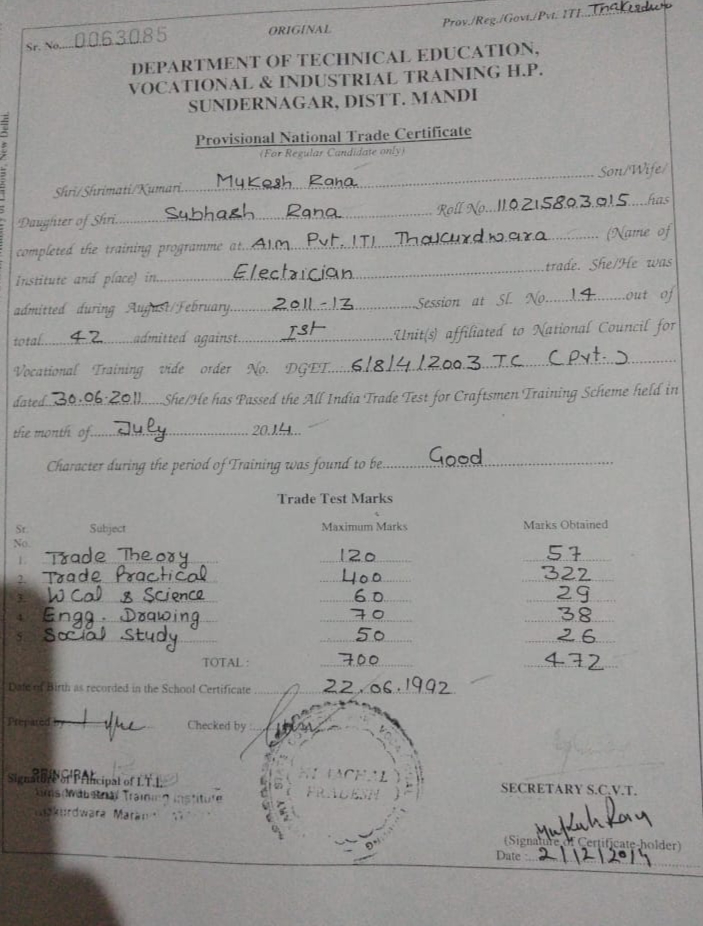 Sr. No. 0063085
ORIGINAL
Prov./Reg./Govt./Pvt. ITI Thakurdwa
DEPARTMENT OF TECHNICAL EDUCATION,
VOCATIONAL & INDUSTRIAL TRAINING H.P.
SUNDERNAGAR, DISTT. MANDI
Provisional National Trade Certificate
(For Regular Candidate only)
Shri/Shrimati/Kumari Mukesh Rana Son/Wife/
Daughter of Shri Subhash Rana Roll No. 110215803015 has
completed the training programme at AIM Pvt. ITI Thakurdwara (Name of
Institute and place) in Electrician trade. She/He was
admitted during August/February 2011-13 Session at Sl. No. 14 out of
total 42 admitted against Ist Unit(s) affiliated to National Council for
Vocational Training vide order No. DGET 6/8/4/2003 TC (Pvt.)
dated 30.06.2011 She/He has Passed the All India Trade Test for Craftsmen Training Scheme held in
the month of July 2014
Character during the period of Training was found to be Good
Trade Test Marks
Sr. No. Subject Maximum Marks Marks Obtained
1. Trade Theory 120 57
2. Trade Practical 400 322
3. W Cal & Science 60 29
4. Engg. Drawing 70 38
5. Social Study 50 26
TOTAL : 700 472
Date of Birth as recorded in the School Certificate 22.06.1992
Prepared by
Checked by :
HIMACHAL
PRADESH
PRINCIPAL
Signature of Principal of I.T.I.
Industrial Training Institute
SECRETARY S.C.V.T.
Mukesh Rana
(Signature of Certificate-holder)
Date : 2/12/2014
Labour, New Delhi.